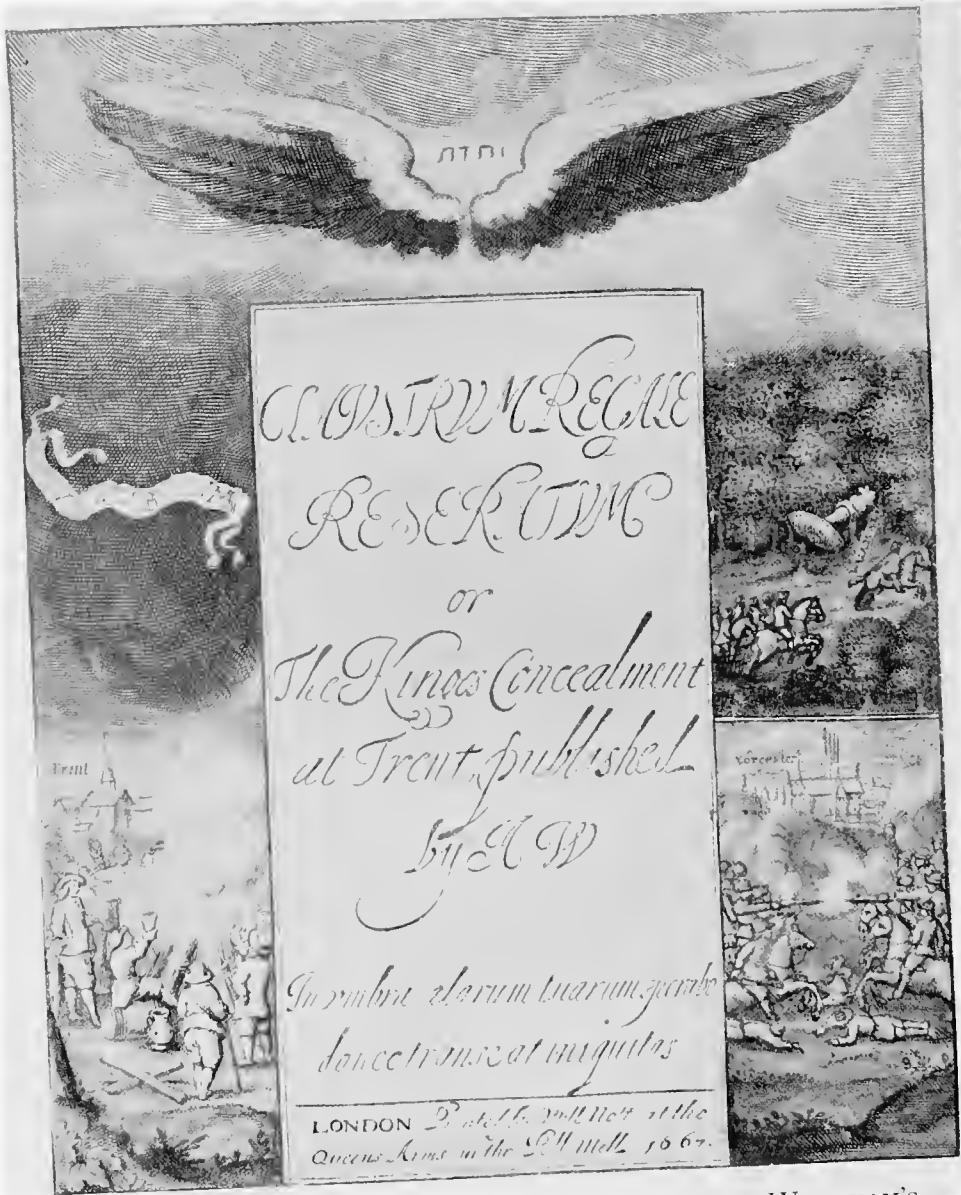 CLAVSTRVM REGALE
RESERATVM
or
The Kinges Concealment
at Trent published
by A W
In umbra alarum tuarum sperabo
donec transeat iniquitas
LONDON Will Nott at the
Queens Arms in the Pell Mell 1667.
Trent
Worcester